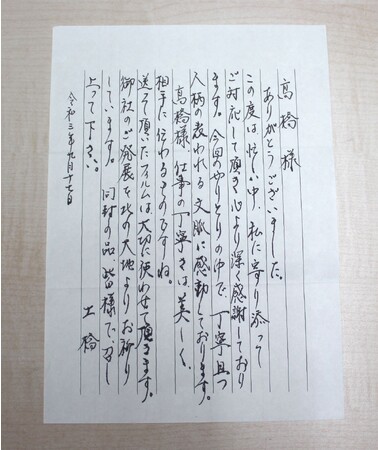 高橋様
ありがとうございました。
この度は忙しい中、私に寄り添って
ご対応して頂き心より深く感謝しており
ます。今回のやりとりの中で、丁寧且つ
人柄の表われる文脈に感動しております。
高橋様、仕事の丁寧さは、美しく、
相手に伝わるものですね。
送って頂いたフィルムは大切に使わせて頂きます。
御社のご発展を北の大地よりお祈り
しています。同封の品、皆様で、召し
上って下さい。
土橋
令和三年九月十七日